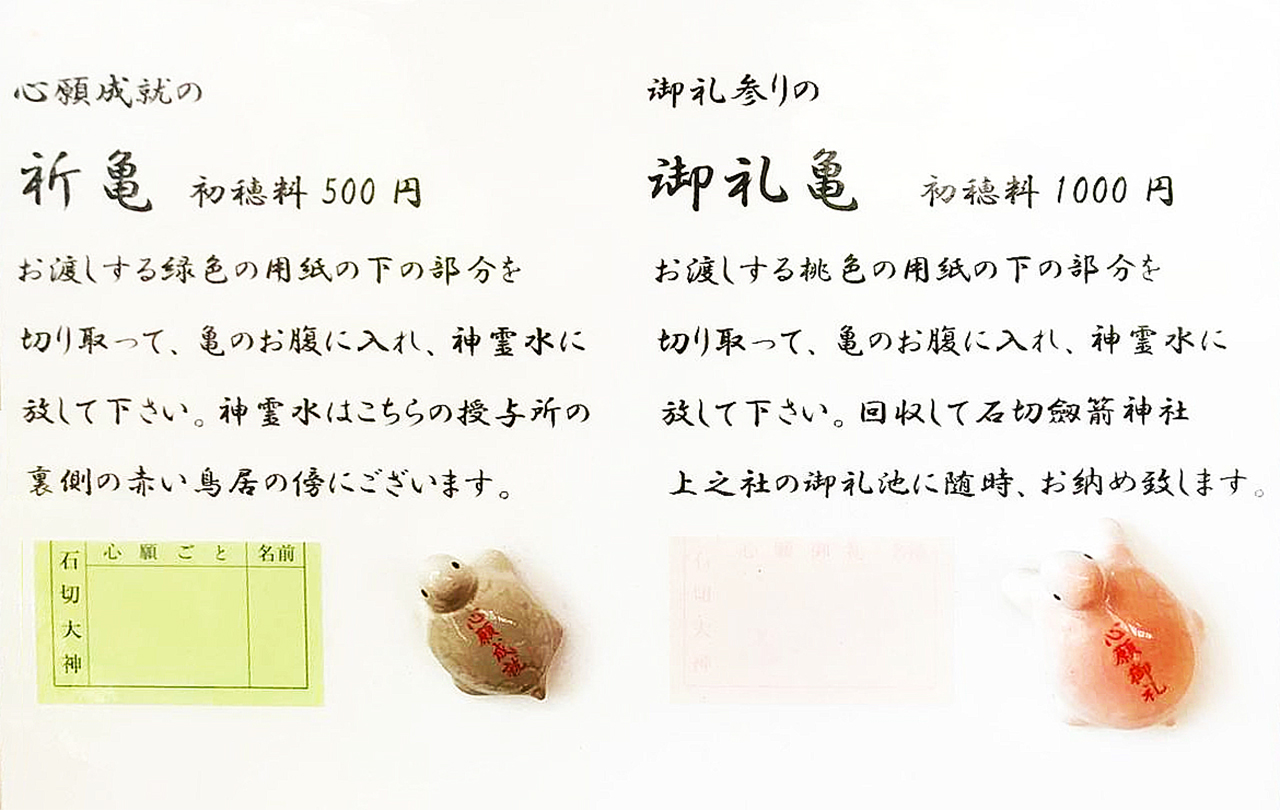 心願成就の
祈亀 初穂料 500 円
お渡しする緑色の用紙の下の部分を
切り取って、亀のお腹に入れ、神霊水に
放して下さい。神霊水はこちらの授与所の
裏側の赤い鳥居の傍にございます。
石切大神
心願ごと 名前
心願成就
御礼参りの
御礼亀 初穂料 1000 円
お渡しする桃色の用紙の下の部分を
切り取って、亀のお腹に入れ、神霊水に
放して下さい。回収して石切劔箭神社
上之社の御礼池に随時、お納め致します。
石切大神
心願御礼 名前
心願御礼